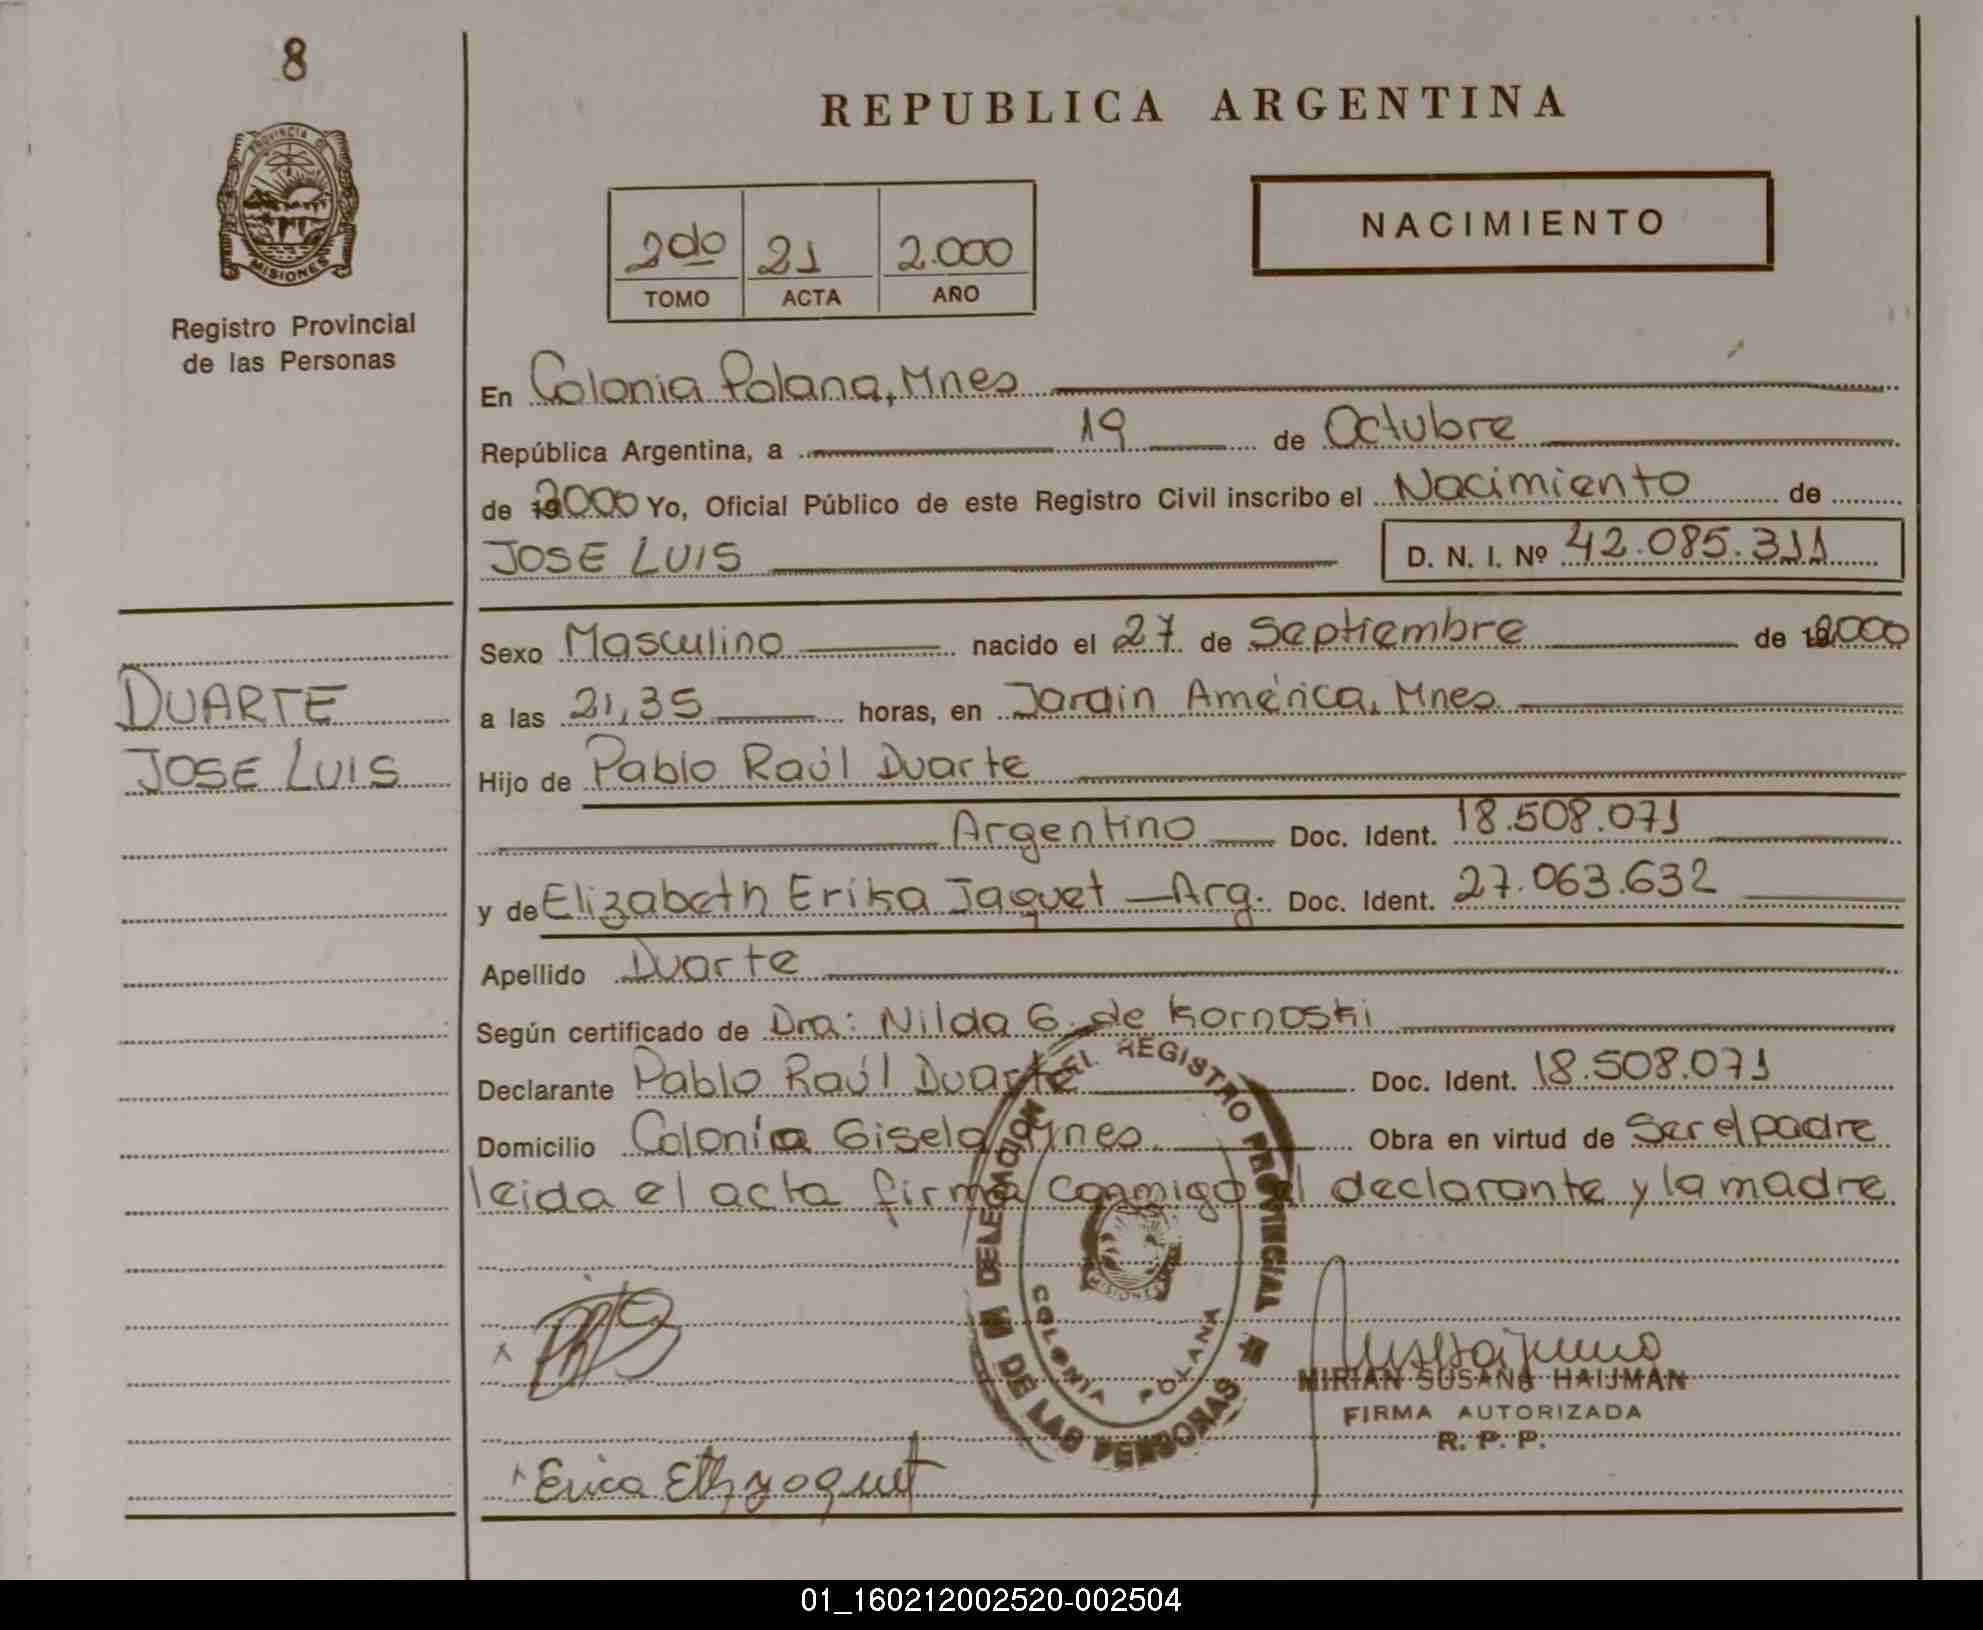 8
REPUBLICA ARGENTINA
PROVINCIA DE
MISIONES
Registro Provincial
de las Personas
NACIMIENTO
2do 21 2.000
TOMO ACTA AÑO
En Colonia Polana, Mnes
República Argentina, a 19 de Octubre
de 2000 Yo, Oficial Público de este Registro Civil inscribo el Nacimiento de
JOSE LUIS D. N. I. Nº 42.085.311
Sexo Masculino nacido el 27 de Septiembre de 2000
DUARTE
JOSE LUIS
a las 21,35 horas, en Jardin América, Mnes
Hijo de Pablo Raúl Duarte
Argentino Doc. Ident. 18.508.071
y de Elizabeth Erika Jaquet — Arg. Doc. Ident. 27.063.632
Apellido Duarte
Según certificado de Dra: Nilda G. de Kornoski
Declarante Pablo Raúl Duarte Doc. Ident. 18.508.071
Domicilio Colonia Gisela Mnes. Obra en virtud de Ser el padre
leida el acta firma conmigo el declarante y la madre
DELEGACION DEL REGISTRO PROVINCIAL DE LAS PERSONAS
COLONIA POLANA
MISIONES
MIRIAN SUSANA HAIJMAN
FIRMA AUTORIZADA
R. P. P.
Erica
01_160212002520-002504